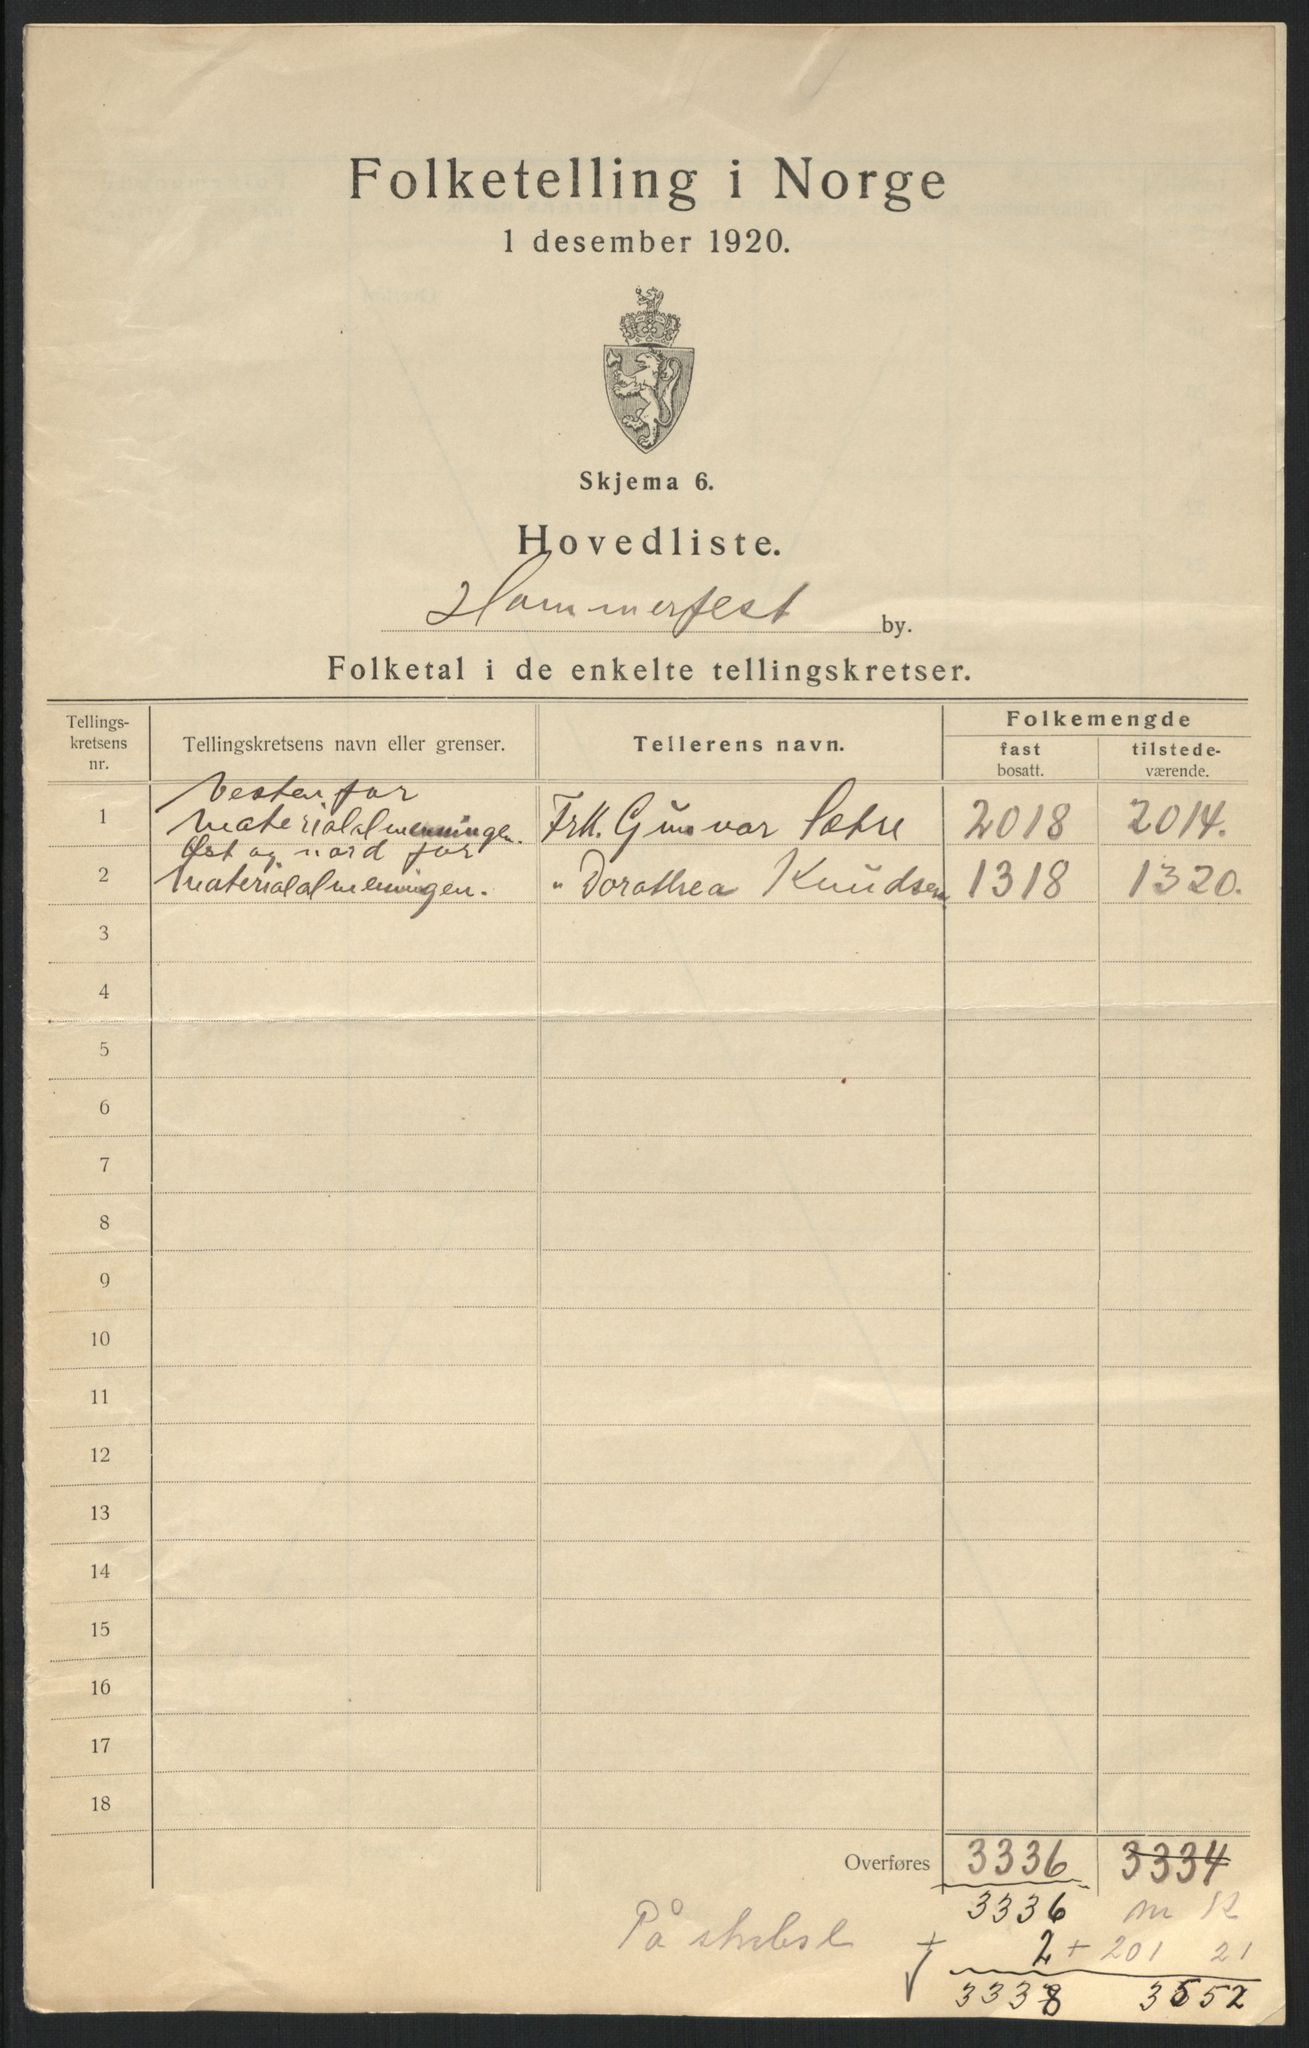 Folketelling i Norge
1 desember 1920.
Skjema 6.
Hovedliste.
Hammerfest by.
Folketal i de enkelte tellingskretser.
Tellings-
kretsens
nr.
Tellingskretsens navn eller grenser.
Tellerens navn.
Folkemengde
fast
bosatt.
tilstede-
værende.
Vesten for
1 materialalmenningen. Frk. Gunvor Sætre 2018 2014.
Øst og nord for
2 materialalmenningen. " Dorothea Knudsen 1318 1320.
3
4
5
6
7
8
9
10
11
12
13
14
15
16
17
18
Overføres 3336 3334
3336 m k
På + 2 + 201 21
3338 3552